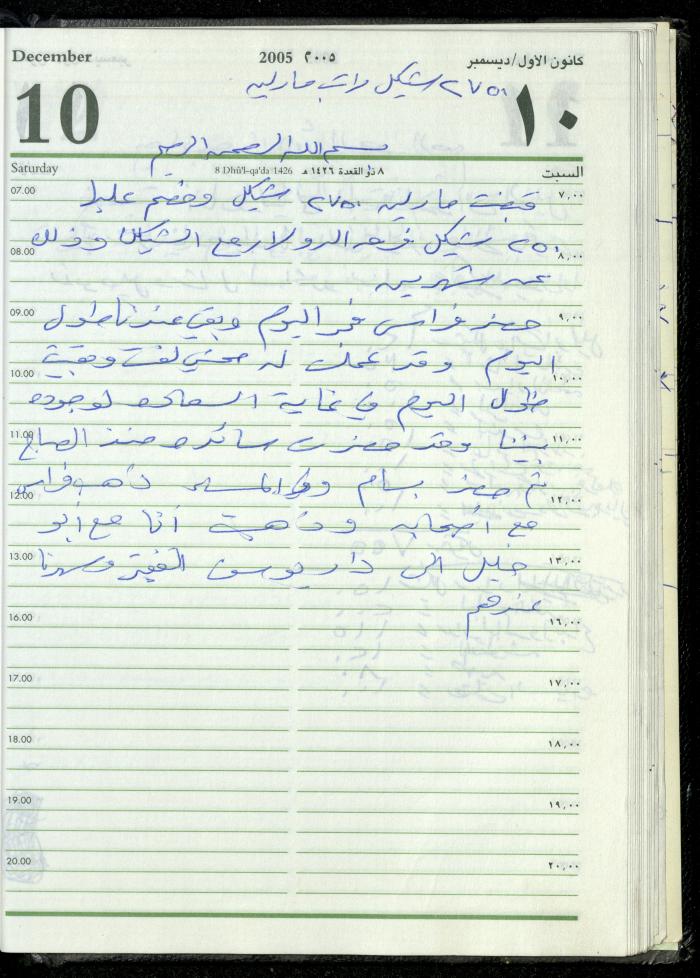 December 2005 ٢٠٠٥ كانون الأول/ديسمبر
٢٧٥٠ شيكل راتب مارلين
10 ١٠
بسم الله الرحمن الرحيم
Saturday 8 Dhû'l-qa'da 1426 ٨ ذو القعدة ١٤٢٦ هـ السبت
07.00 ٧,٠٠
قبضت مارلين ٢٧٥٠ شيكل وخصم عليها
٢٥٠ شيكل فرق الدولار مع الشيكل وذلك
08.00 ٨,٠٠
عن شهرين
09.00 ٩,٠٠
حضر فراس فجر اليوم وبقي عندنا طول
اليوم وقد عملت له محشي لفت وبقيت
10.00 ١٠,٠٠
طول اليوم في غاية السعادة لوجوده
11.00 ١١,٠٠
بيننا وقد حضرت سائدة منذ الصباح
ثم حضر بسام وفي المساء ذهب فراس
12.00 ١٢,٠٠
مع أصحابه وذهبت أنا مع أبو
13.00 ١٣,٠٠
خليل الى دار يوسف الفقير وسهرنا
عندهم
16.00 ١٦,٠٠
17.00 ١٧,٠٠
18.00 ١٨,٠٠
19.00 ١٩,٠٠
20.00 ٢٠,٠٠